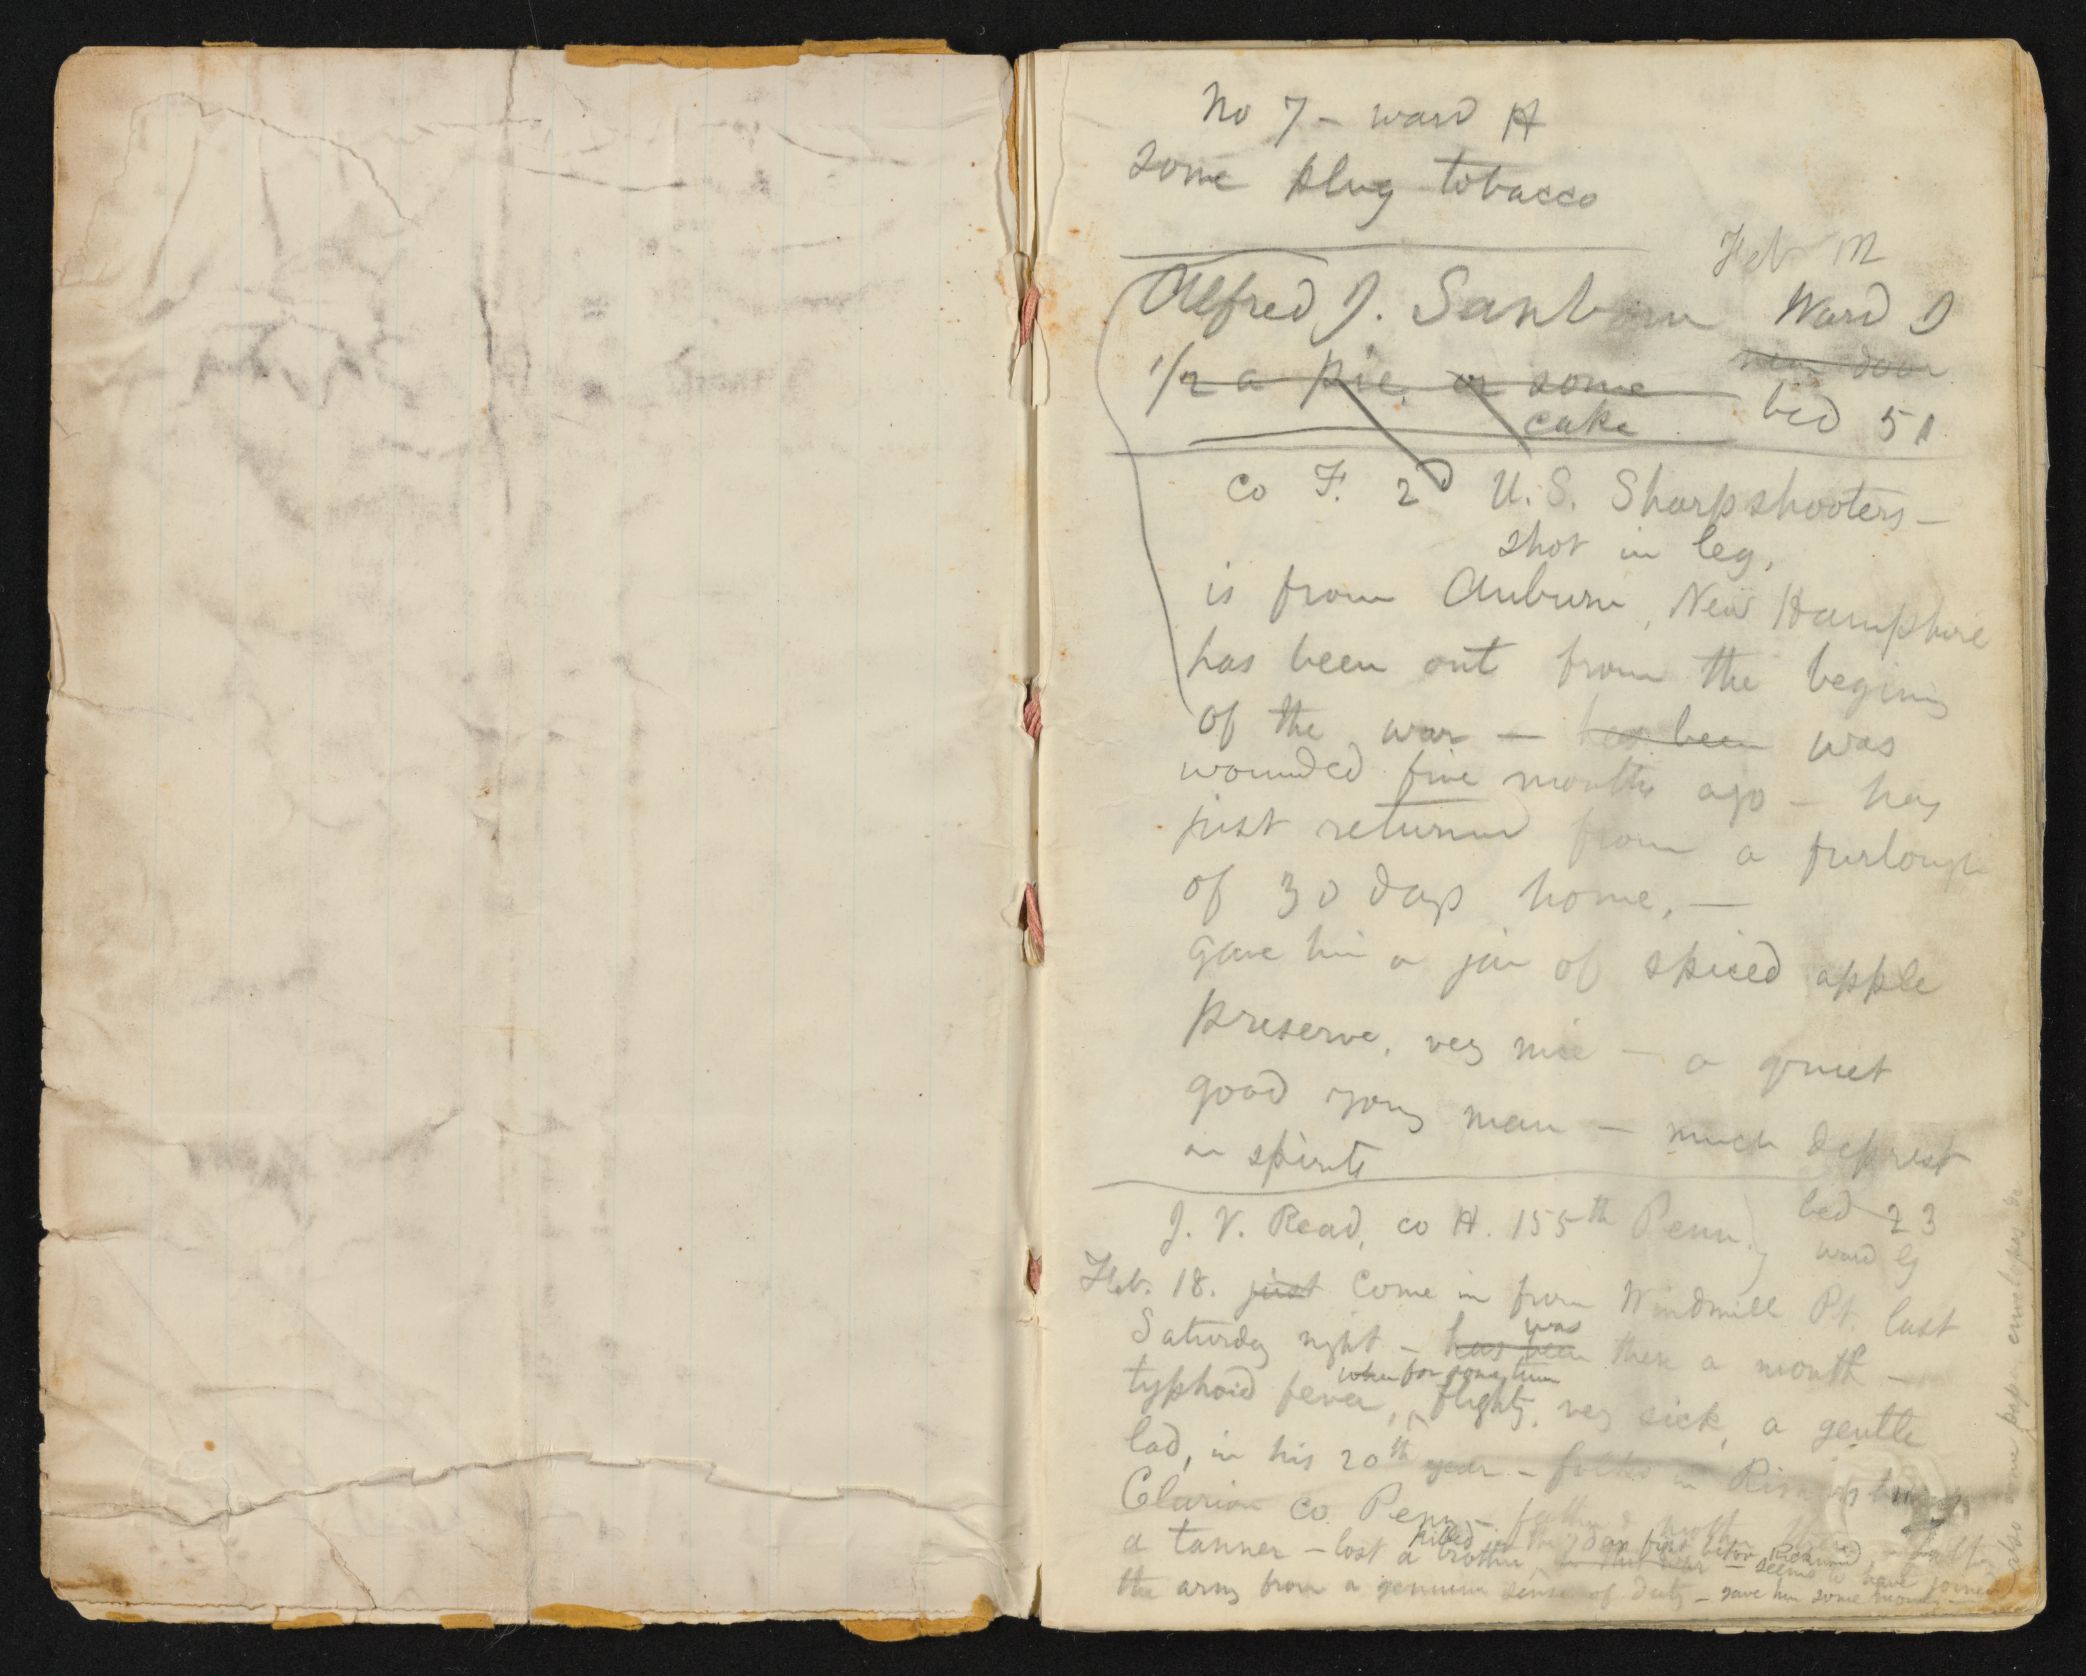 No 7 – ward H
some plug tobacco
Feb
Alfred J. Sanborn Ward D
near door
1/2 a pie, or some
cake
bed 51
co F. 2d U.S. Sharpshooters –
shot in leg,
is from Auburn, New Hampshire
has been out from the begining
of the war – has been was
wounded five months ago – has
just returned from a furlough
of 30 days home. –
gave him a jar of spiced apple
preserve, very nice – a quiet
good young man – much deprest
in spirits
J. V. Read, co H. 155th Penn.
bed 23
ward G
Feb. 18. just Come in from Windmill Pt. last
was
Saturday night – has been there a month –
when for some time
typhoid fever, flighty, very sick, a gentle
lad, in his 20th year – folks in
Clarion co. Penn – father &
killed in the 7 day fight before Richmond
a tanner – lost a brother, in this war – seems to have joined
the army from a genuine sense of duty – gave him some money –
also some paper envelopes &c